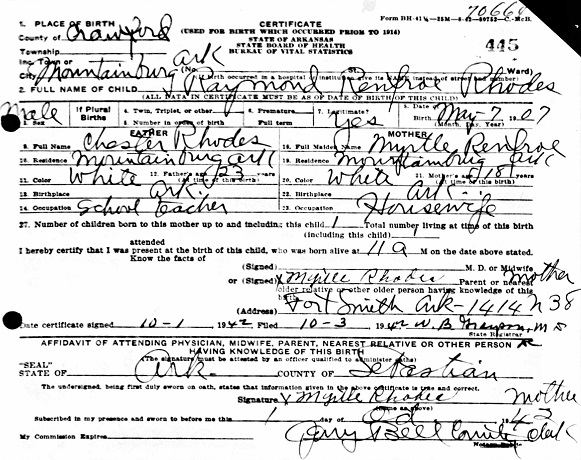 70664
Form BH-41¼-25M-8-42-80752-C.-McB.
1. PLACE OF BIRTH
CERTIFICATE
County of Crawford
(USED FOR BIRTH WHICH OCCURRED PRIOR TO 1914)
STATE OF ARKANSAS
Township
STATE BOARD OF HEALTH
BUREAU OF VITAL STATISTICS
445
Inc. Town or
City Mountainburg Ark (No. Ward)
(If birth occurred in a hospital or institution, give its NAME instead of street and number)
2. FULL NAME OF CHILD Raymond Renfroe Rhodes
(ALL DATA IN CERTIFICATE MUST BE AS OF DATE OF BIRTH OF THIS CHILD)
Male
3. Sex
If Plural Births
4. Twin, Triplet, or other
5. Number in order of birth
6. Premature
Full term
7. Legitimate?
Yes
8. Date of Birth May-7 1907
(Month, Day, Year)
FATHER
MOTHER
9. Full Name Chester Rhodes
18. Full Maiden Name Myrtle Renfroe
10. Residence Mountainburg Ark
19. Residence Mountainburg Ark
11. Color White 12. Father's age 23 years
(at time of this birth)
20. Color White 21. Mother's age 18 years
(at time of this birth)
13. Birthplace Ark.
22. Birthplace Ark.
14. Occupation School Teacher
23. Occupation Housewife
27. Number of children born to this mother up to and including this child 1 Total number living at time of this birth
(including this child) 1
attended
I hereby certify that I was present at the birth of this child, who was born alive at 11 a M on the date above stated.
Know the facts of
(Signed) M. D. or Midwife
or (Signed) Myrtle Rhodes Parent or nearest mother
older relative or other older person having knowledge of this
birth
(Address) Fort Smith Ark-1414 N 38
Date certificate signed 10-1 1942 Filed 10-3 1942 W. B. Grayson, M D
State Registrar
AFFIDAVIT OF ATTENDING PHYSICIAN, MIDWIFE, PARENT, NEAREST RELATIVE OR OTHER PERSON
HAVING KNOWLEDGE OF THIS BIRTH
"SEAL"
(The signature must be attested by an officer qualified to administer oaths)
STATE OF Ark COUNTY OF Sebastian
The undersigned, being first duly sworn on oath, states that information given in the above certificate is true and correct.
Signature X Myrtle Rhodes mother
(Same as above)
Subscribed in my presence and sworn to before me this 1 day of 1942
My Commission Expires Bell County Clerk
Notary Public